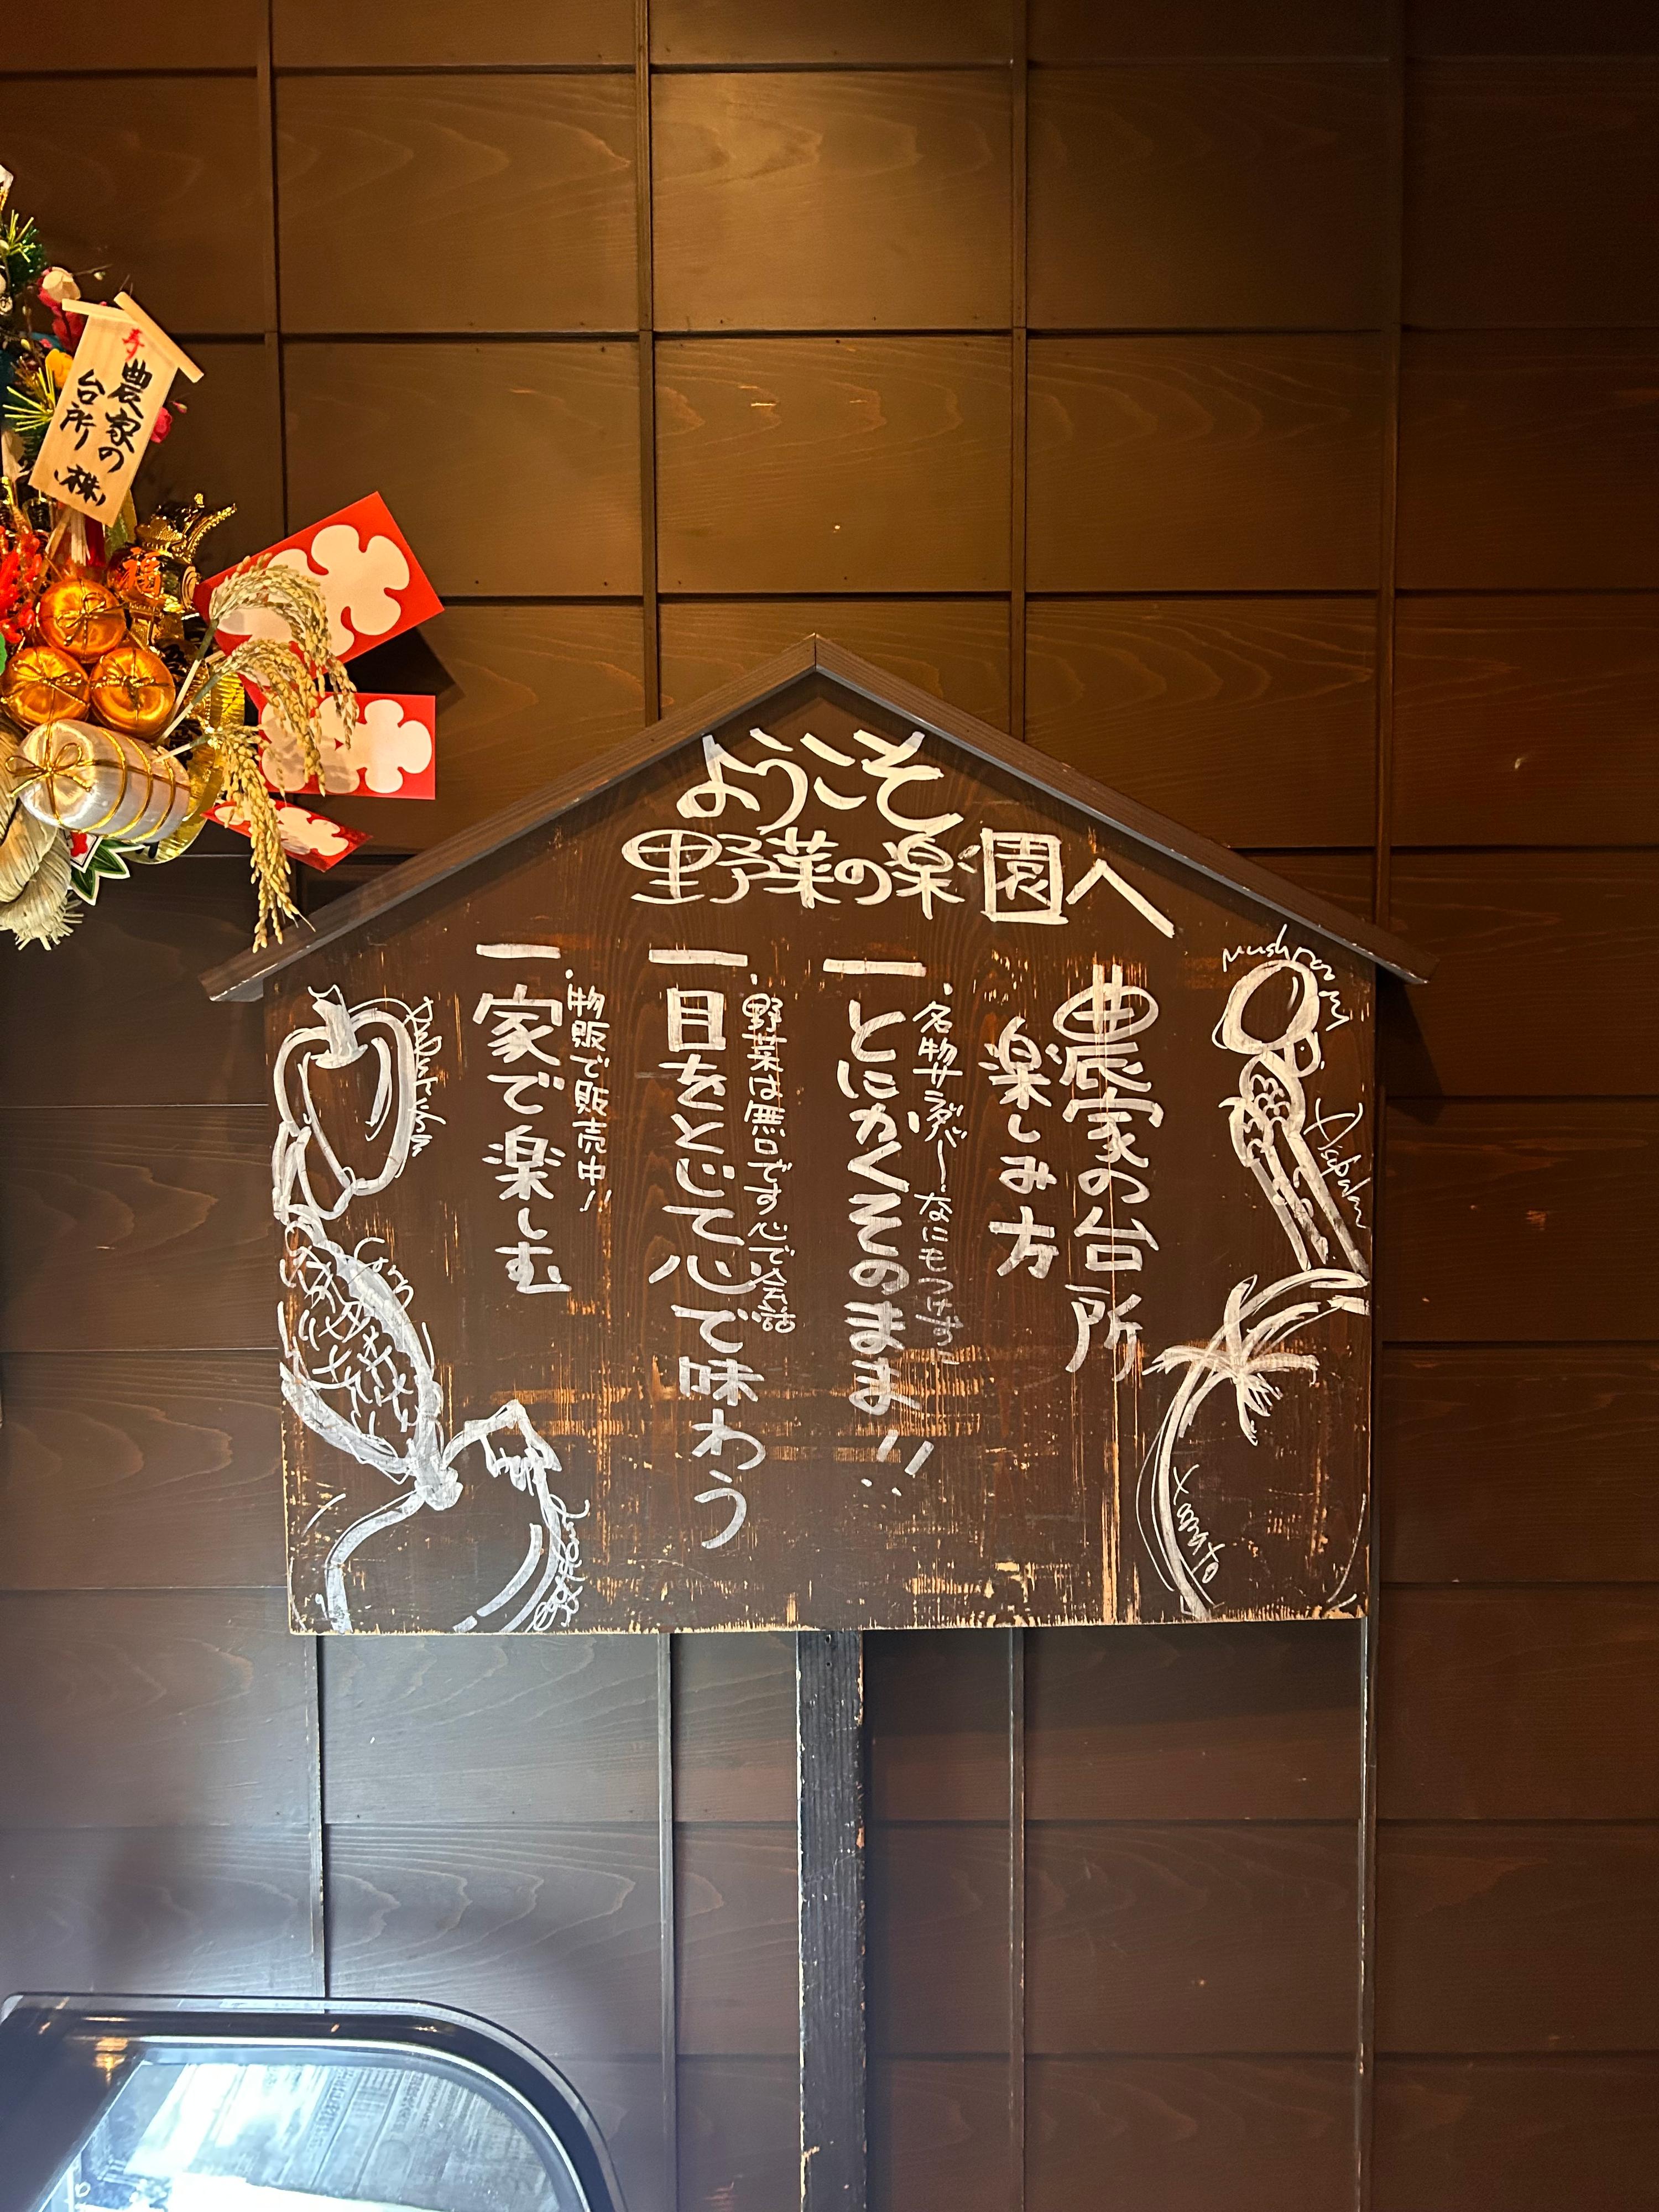 ようこそ
野菜の楽園へ
農家の台所
楽しみ方
一 とにかくそのまま!!
・名物サラダバーなにもつけずに
一 目をとじて心で味わう
・野菜は無口です心で会話
一 家で楽しむ
・物販で販売中!!
mushroom
Paprika
Corn
Tomato
寿
農家の
台所
(株)